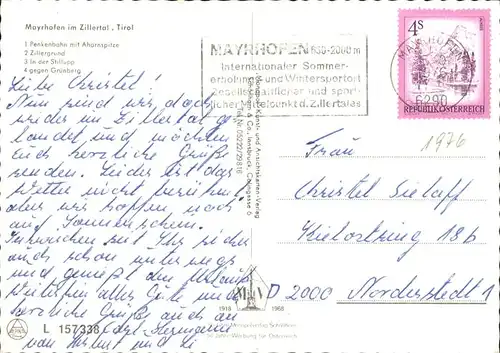 Mayrhofen im Zillertal, Tirol
1 Penkenbahn mit Ahornspitze
2 Zillergrund
3 In der Stillupp
4 gegen Grünberg
MAYRHOFEN 630-2000 m
Internationaler Sommer-
erholungs- und Wintersportort
Gesellschaftlicher und sport-
licher Treffpunkt d. Zillertales
4S
6290
REPUBLIK ÖSTERREICH
1976
Liebe Christel!
Nun sind wir doch
wieder im Zillertal ge
landet und möchten
Euch herzliche Grüße
senden. Leider ist das
Wetter nicht berühmt
aber wir hoffen noch
auf Sonnenschein.
Inzwischen seit Ihr sicher
auch schon unterwegs
und genießt den Urlaub
Weiterhin alles Gute und
herzliche Grüße auch an
Carl-Hermann
von
Frau
Christel
Kielortring 18b
D 2000 Norderstedt 1
1918 1968
L 157338